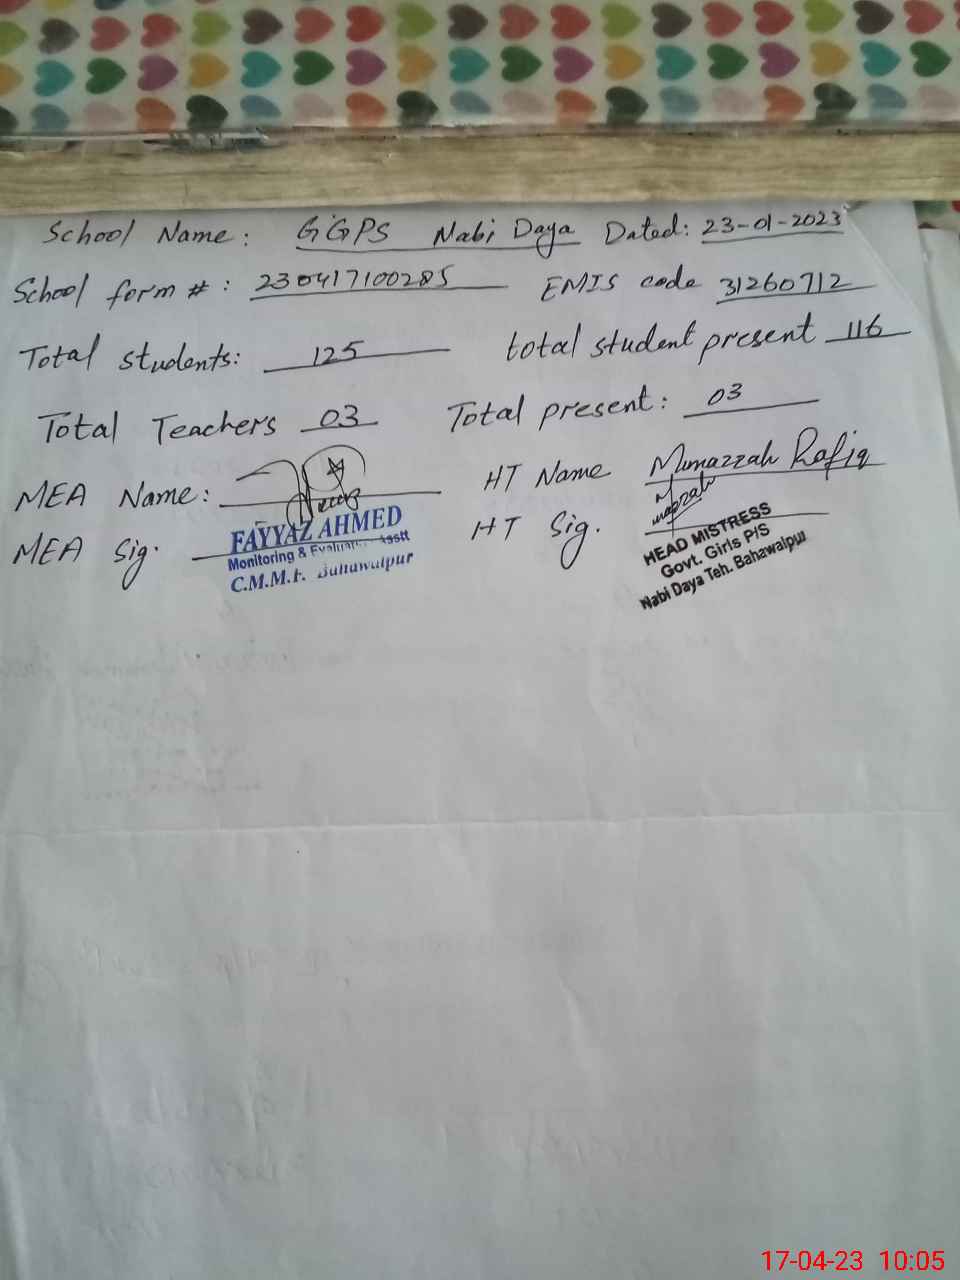 School Name: GGPS Nabi Daya Dated: 23-01-2023
School form #: 230417100285 EMIS code 31260712
Total students: 125 total student present 116
Total Teachers 03 Total present: 03
MEA Name: HT Name Munazzah Rafiq
MEA Sig. HT Sig.
FAYYAZ AHMED
Monitoring & Evaluat Asstt
C.M.M.F. Bahawalpur
HEAD MISTRESS
Govt. Girls P/S
Nabi Daya Teh. Bahawalpur
17-04-23 10:05